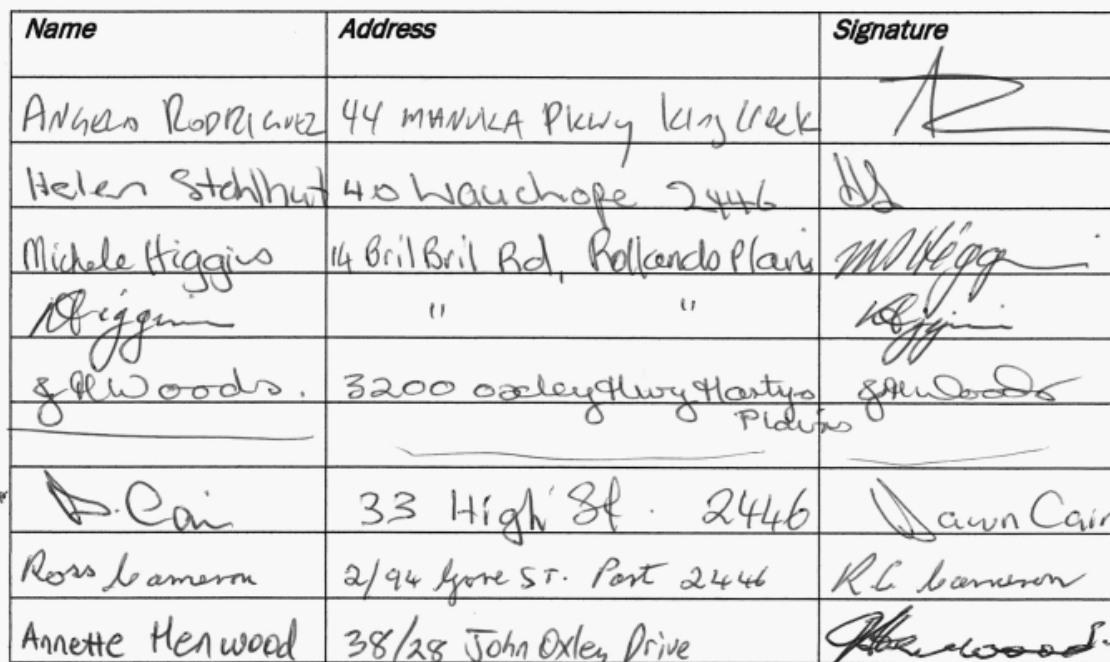 Name Address Signature
ANGELO RODRIGUEZ 44 MANUKA PKWY King Creek
Helen Stahlhut 40 Wauchope 2446
Michele Higgins 14 Bril Bril Rd, Rollands Plains
Higgins " " Higgins
Woods. 3200 oxley Hwy Hartys Woods
Plains
D. Cain 33 High St. 2446 Dawn Cain
Ross Cameron 2/94 Gore ST. Port 2446 R.C Cameron
Annette Henwood 38/28 John Oxley Drive